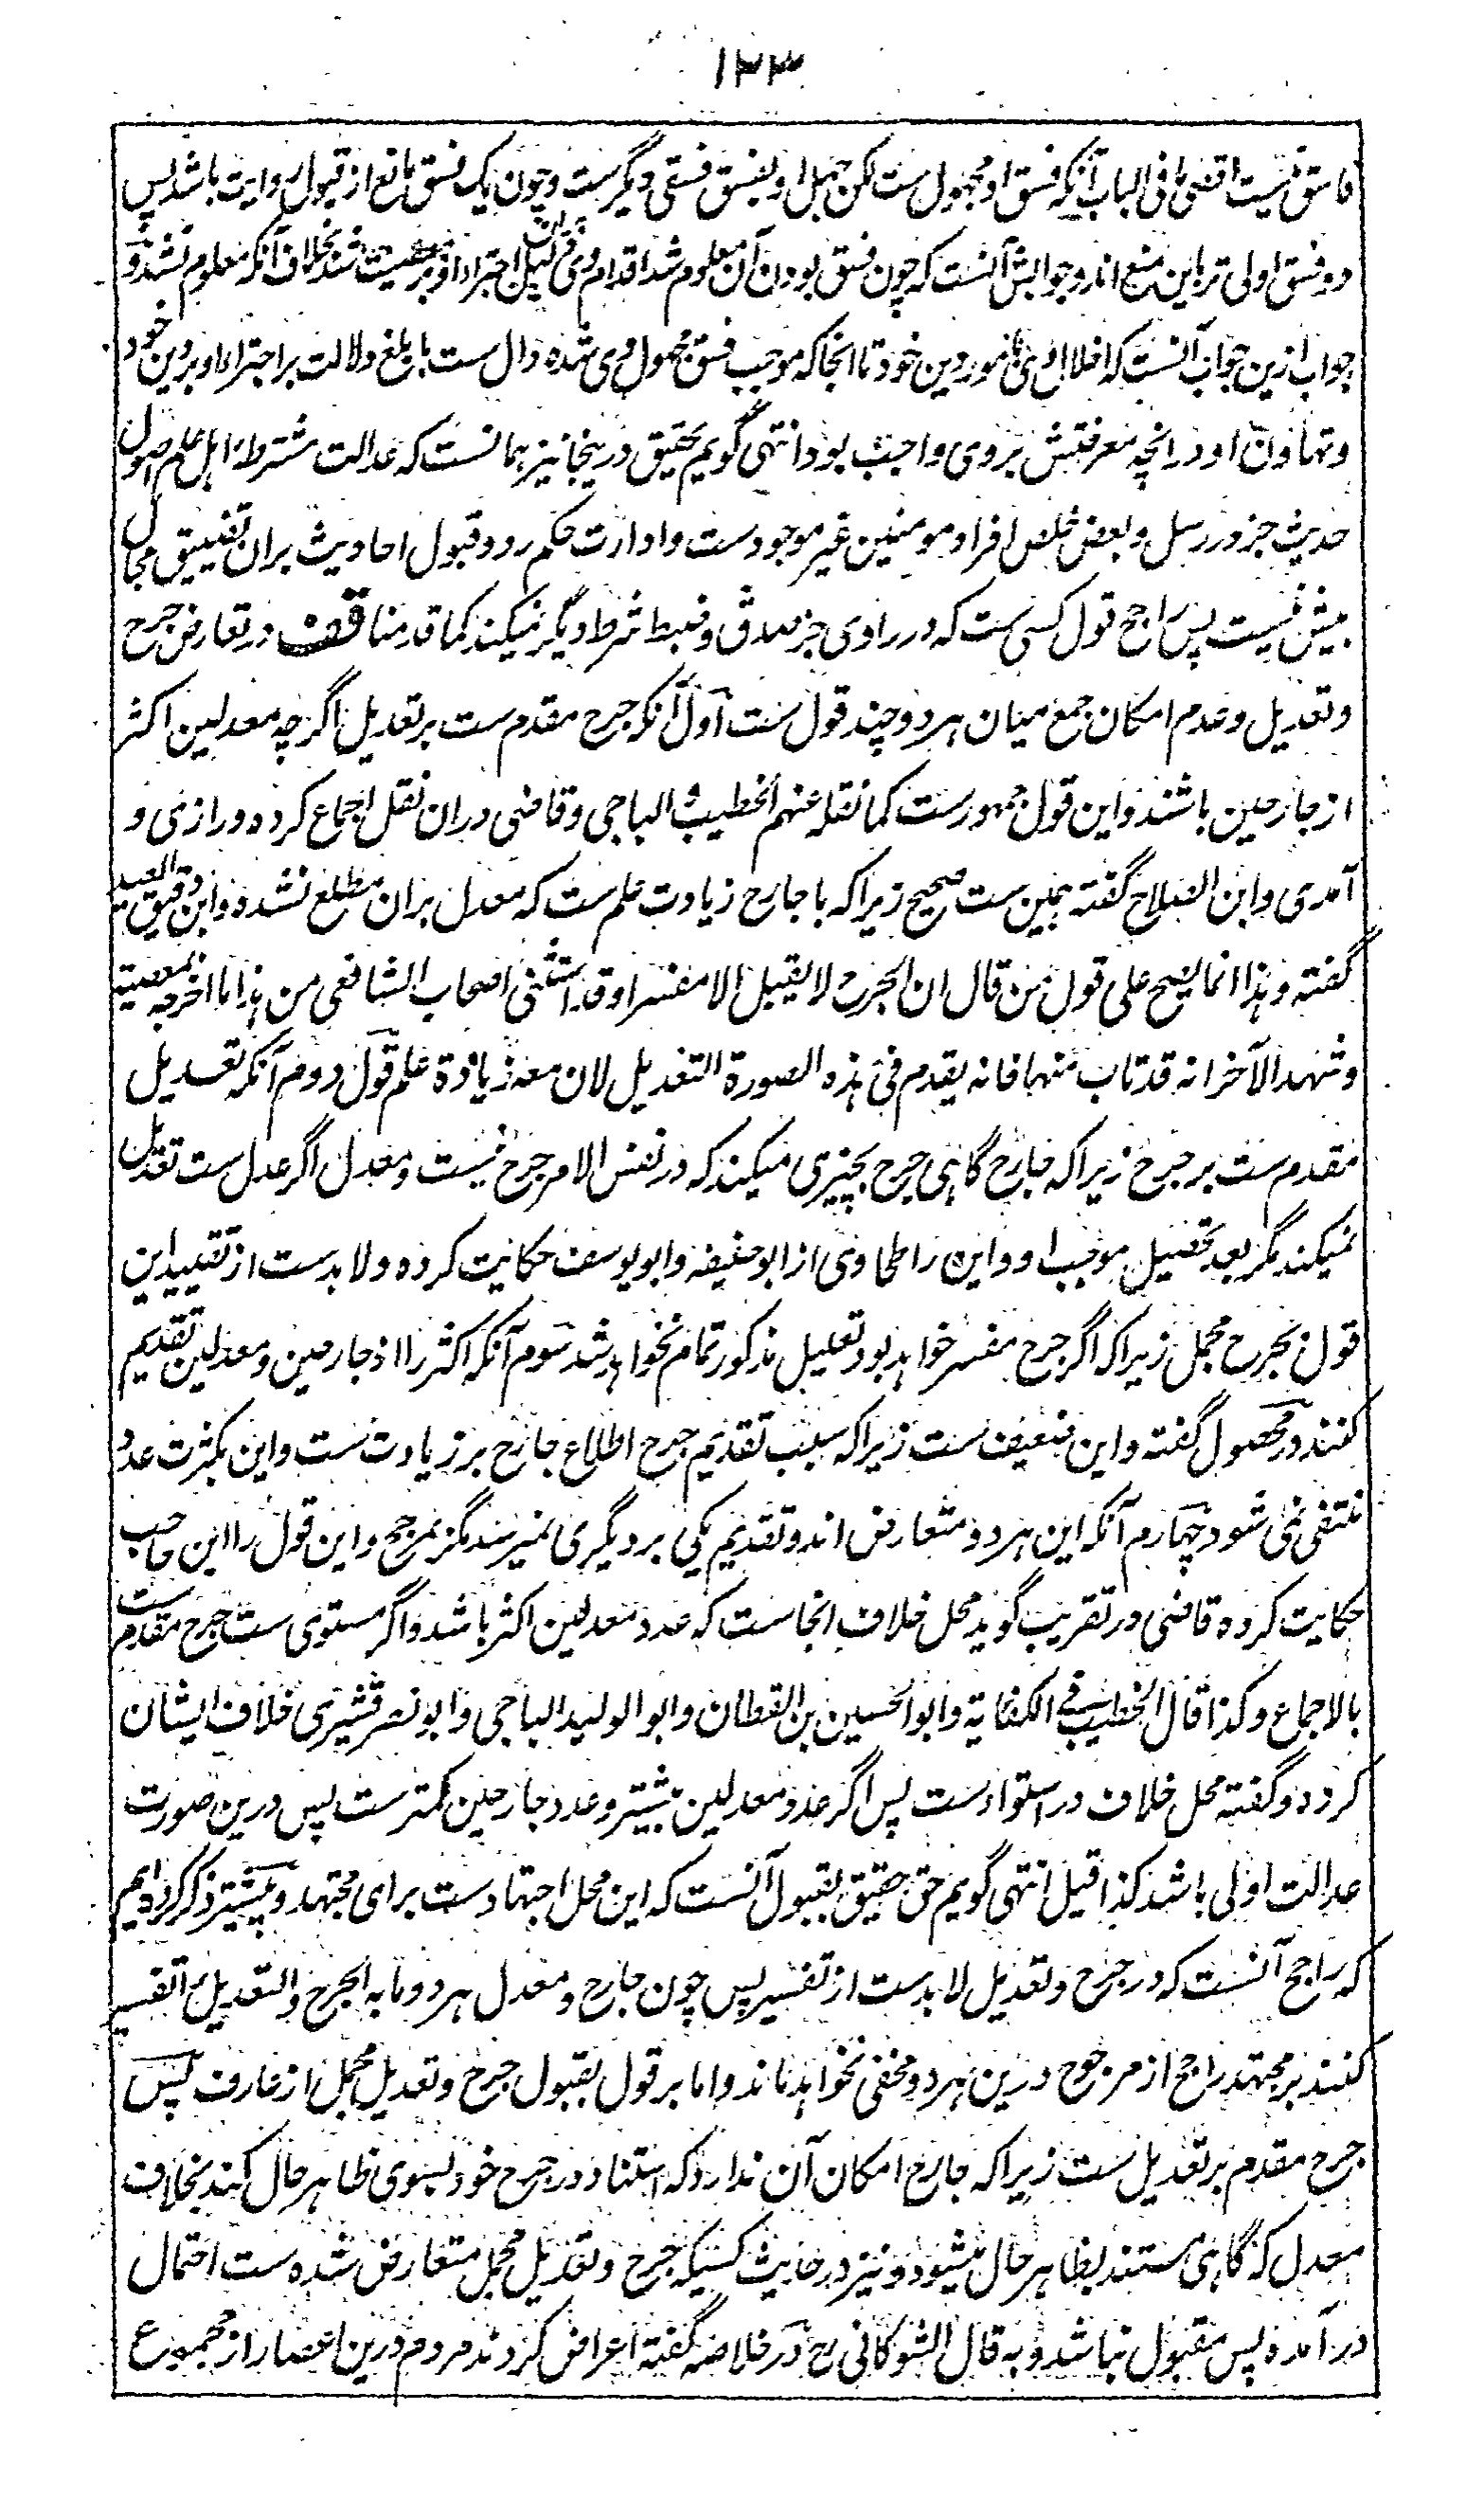 ۱۳۳
فاسق نیست اقصی ما فی الباب آنکه فسق او مجهول ست لکن جهل او بفسق فسقی دیگرست و چون یک فسق مانع از قبول روایت باشد پس
دو فسق اولی تر باین منع اند و جوابش آنست که چون فسق بودن آن معلوم شد اقدام وی بران دلیل اجتراء او بر معصیت شد بخلاف آنکه معلوم نشد و
جواب ازین جواب آنست که اخلال وی بامور دین خود تا انجا که موجب فسق مجهول وی شده دال ست بابلغ دلالت بر اجتراء او بر دین خود
و تهاون او در انچه معرفتش بر وی واجب بود انتهی گویم تحقیق درینجا نیز همانست که عدالت مشترطه اهل علم اصول
حدیث جز در رسل و بعض خلص افراد مومنین غیر موجودست و ادارت حکم رد و قبول احادیث بران تضییق مجال
بیش نیست پس راجح قول کسی ست که در راوی جز صدق و ضبط شرط دیگر نمیکند کما قدمنا قف در تعارض جرح
و تعدیل و عدم امکان جمع میان هر دو چند قول ست اول آنکه جرح مقدم ست بر تعدیل اگرچه معدلین اکثر
از جارحین باشند و این قول جمهورست کما نقله عنهم الخطیب الباجی و قاضی دران نقل اجماع کرده و رازی و
آمدی و ابن الصلاح گفته همین ست صحیح زیرا که با جارح زیادت علم ست که معدل بران مطلع نشده و ابن دقیق العید
گفته و هذا انما یصح علی قول من قال ان الجرح لا یقبل الا مفسرا و قد استثنی اصحاب الشافعی من هذا ما اخرجه بمعصیة
و شهد الآخر انه قد تاب منها فانه یقدم فی هذه الصورة التعدیل لان معه زیادة علم قول دوم آنکه تعدیل
مقدم ست بر جرح زیرا که جارح گاهی جرح بچیزی میکند که در نفس الامر جرح نیست و معدل اگر عدل ست تعدیل
نمیکند مگر بعد تحصیل موجب او و این را طحاوی از ابو حنیفه و ابو یوسف حکایت کرده و لا بدست از تقیید این
قول بجرح مجمل زیرا که اگر جرح مفسر خواهد بود تعلیل مذکور تمام نخواهد شد سوم آنکه اکثر را از جارحین و معدلین تقدیم
کنند در محصول گفته و این ضعیف ست زیرا که سبب تقدیم جرح اطلاع جارح بر زیادت ست و این بکثرت عدد
منتفی نمی شود چهارم آنکه این هر دو متعارض اند و تقدیم یکی بر دیگری نمیرسد مگر بمرجح و این قول را ابن حاجب
حکایت کرده قاضی در تقریب گوید محل خلاف انجاست که عدد معدلین اکثر باشد و اگر مستوی ست جرح مقدم ست
بالاجماع و کذا قال الخطیب فی الکفایة و ابو الحسین بن القطان و ابو الولید الباجی و ابو نصر قشیری خلاف ایشان
کرده و گفته محل خلاف در استواءست پس اگر عدد معدلین بیشتر و عدد جارحین کمترست پس درین صورت
عدالت اولی باشد کذا قیل انتهی گویم حق حقیق بقبول آنست که این محل اجتهادست برای مجتهد و پیشتر ذکر کرده ایم
که راجح آنست که در جرح و تعدیل لا بدست از تفسیر پس چون جارح و معدل هر دو ما به الجرح و التعدیل را تفسیر
کنند بر مجتهد راجح از مرجوح درین هر دو مخفی نخواهد ماند و اما بر قول بقبول جرح و تعدیل مجمل از عارف پس
جرح مقدم بر تعدیل ست زیرا که جارح امکان آن ندارد که استناد در جرح خود بسوی ظاهر حال کند بخلاف
معدل که گاهی مستند بظاهر حال میشود و نیز در حدیث کسیکه جرح و تعدیل مجمل متعارض شده ست احتمال
در آمده پس مقبول نباشد و به قال الشوکانی رح در خلاصه گفته اعراض کردند مردم درین اعصار از مجموع